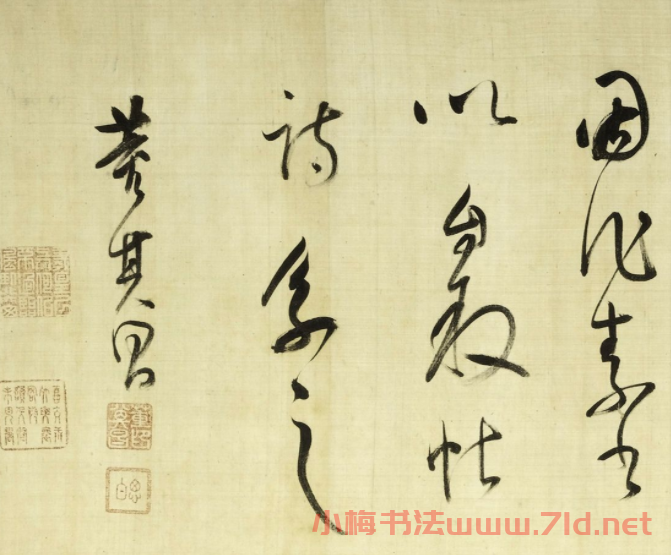 因作素書
以自敘帖
詩系之
董其昌
小梅书法www.7ld.net